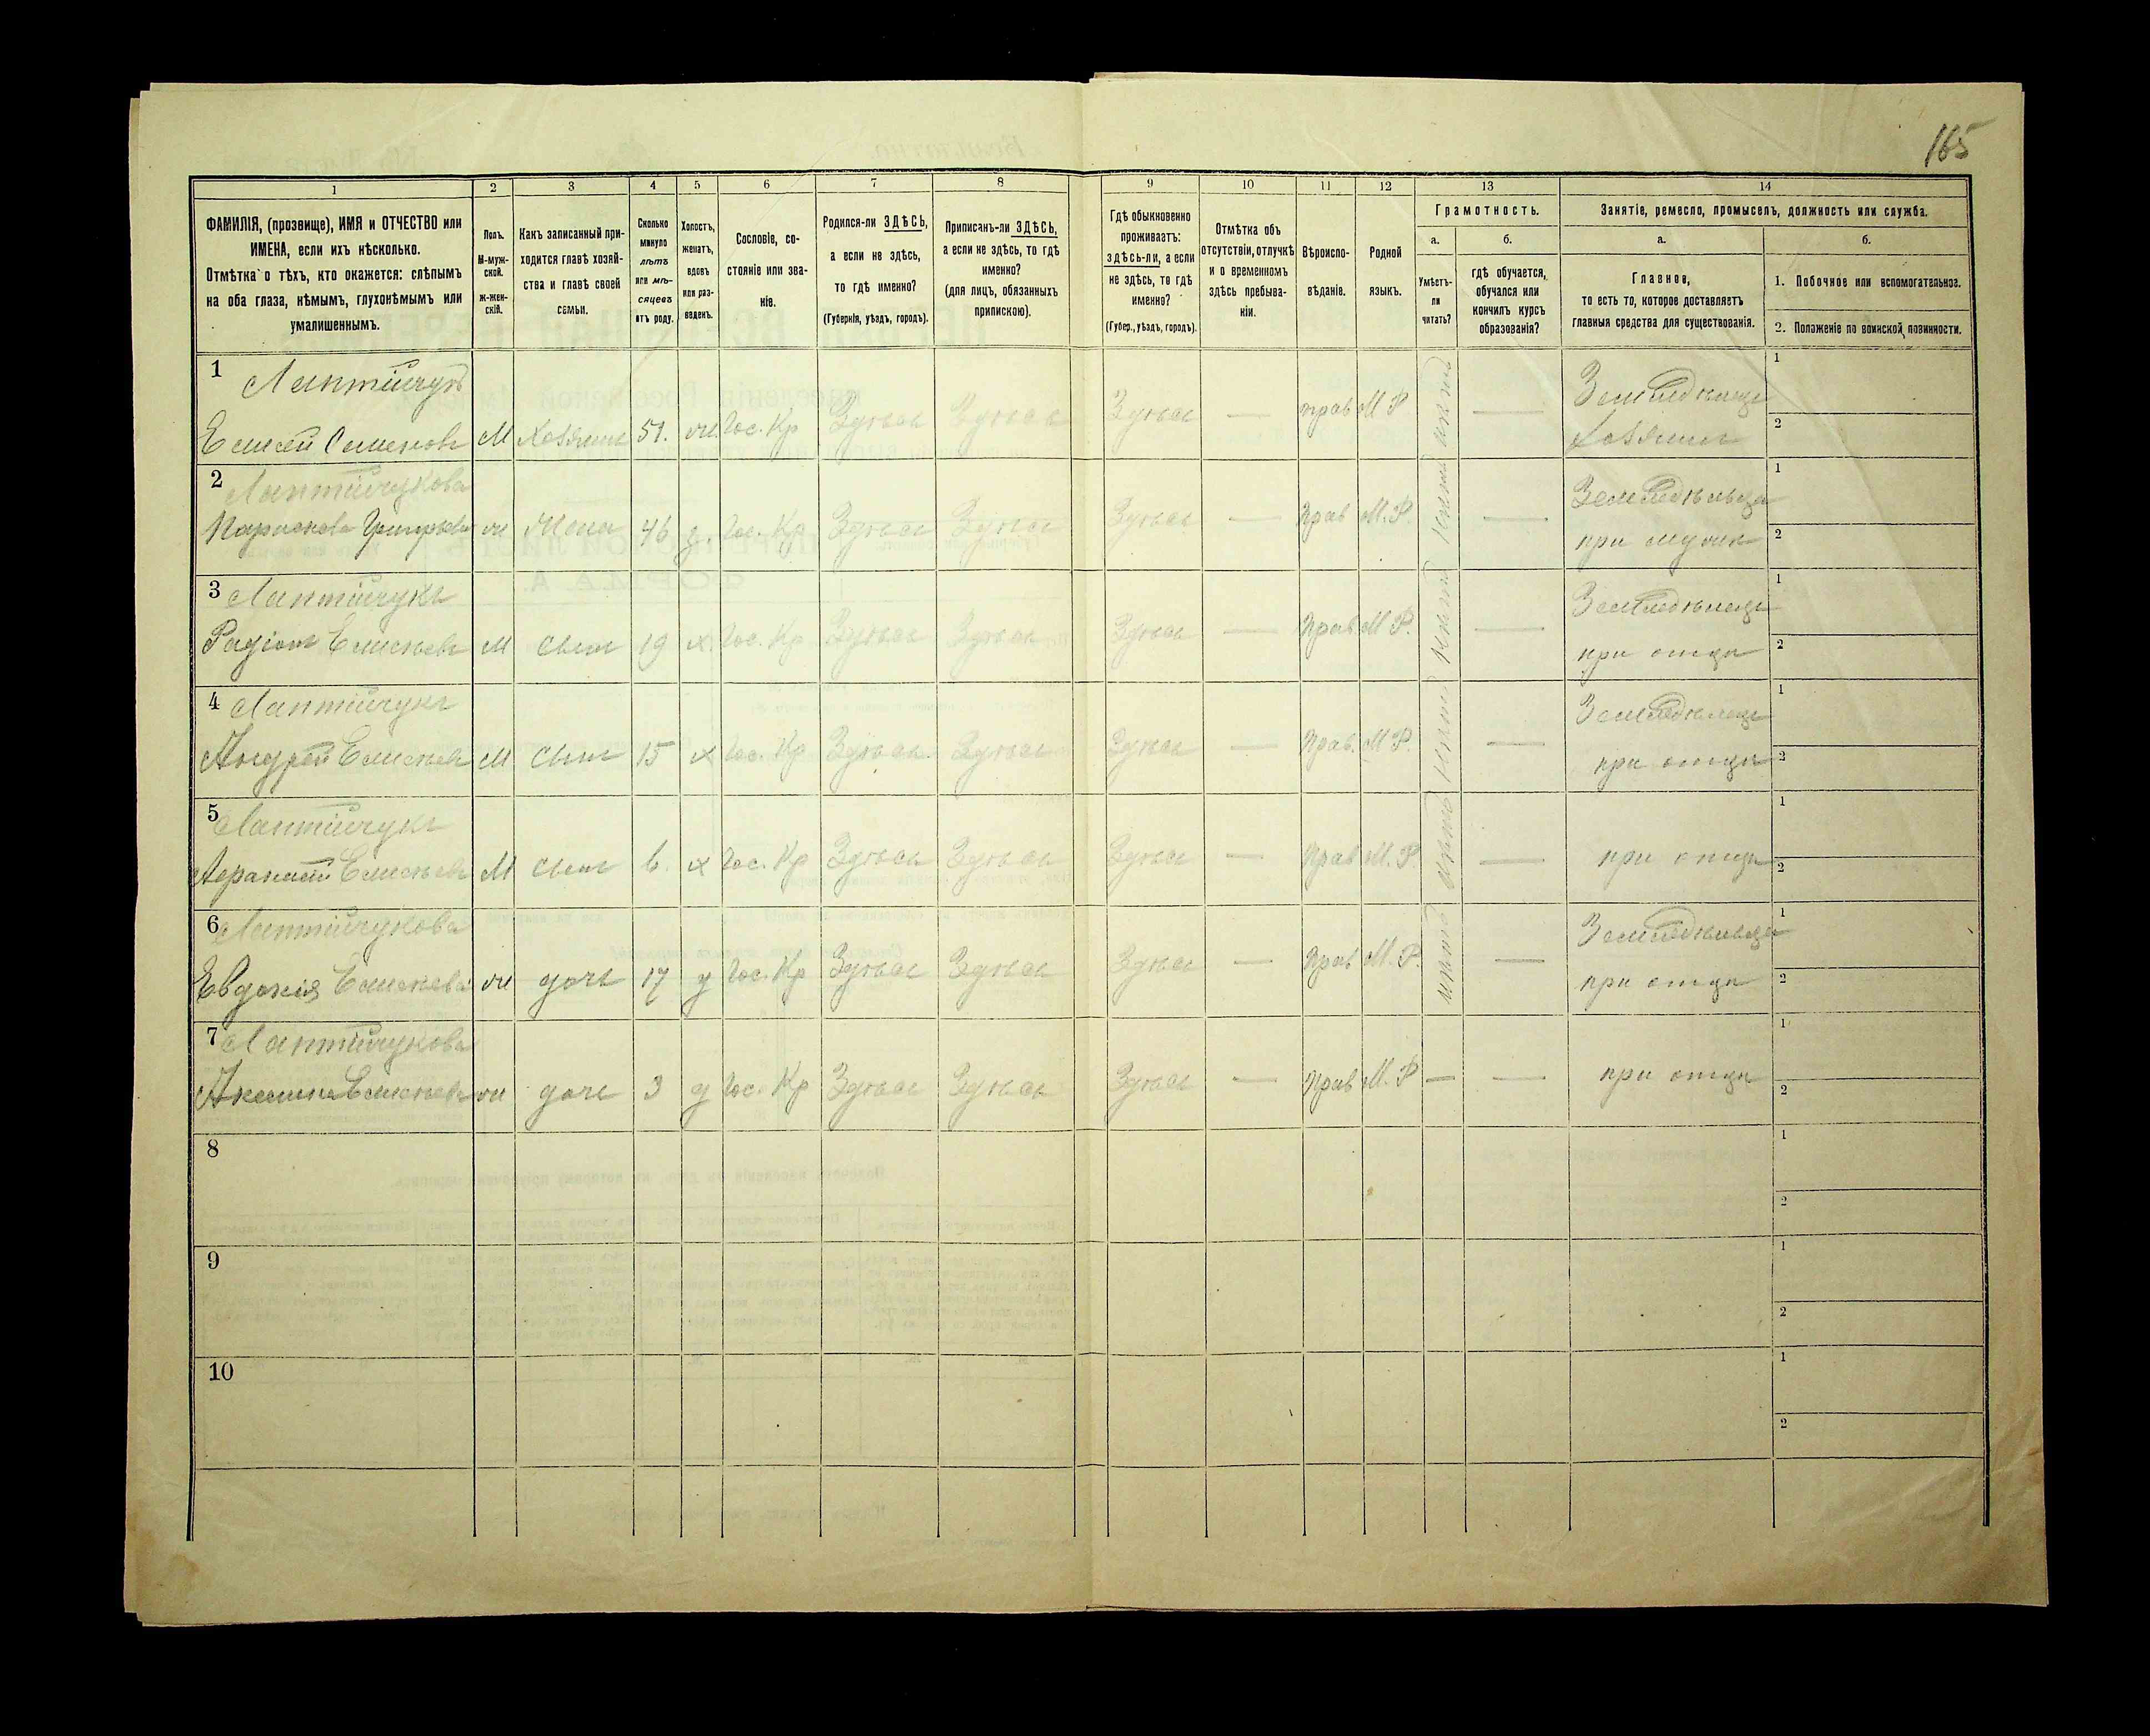 165
1 2 3 4 5 6 7 8 9 10 11 12 13 14
ФАМИЛІЯ, (прозвище), ИМЯ и ОТЧЕСТВО или
ИМЕНА, если ихъ нѣсколько.
Отмѣтка о тѣхъ, кто окажется: слѣпымъ
на оба глаза, нѣмымъ, глухонѣмымъ или
умалишеннымъ.
Полъ.
М-муж-
ской.
ж-жен-
скій.
Какъ записанный при-
ходится главѣ хозяй-
ства и главѣ своей
семьи.
Сколько
минуло
лѣтъ
или мѣ-
сяцевъ
отъ роду.
Холостъ,
женатъ,
вдовъ
или раз-
веденъ.
Сословіе, со-
стояніе или зва-
ніе.
Родился-ли ЗДѢСЬ,
а если не здѣсь,
то гдѣ именно?
(Губернія, уѣздъ, городъ).
Приписанъ-ли ЗДѢСЬ,
а если не здѣсь, то гдѣ
именно?
(для лицъ, обязанныхъ
припискою).
Гдѣ обыкновенно
проживаетъ:
здѣсь-ли, а если
не здѣсь, то гдѣ
именно?
(Губер., уѣздъ, городъ).
Отмѣтка объ
отсутствіи, отлучкѣ
и о временномъ
здѣсь пребыва-
ніи.
Вѣроиспо-
вѣданіе.
Родной
языкъ.
Грамотность.
а.
Умѣетъ-
ли
читать?
б.
гдѣ обучается,
обучался или
кончилъ курсъ
образованія?
Занятіе, ремесло, промыселъ, должность или служба.
а.
Главное,
то есть то, которое доставляетъ
главныя средства для существованія.
б.
1. Побочное или вспомогательное.
2. Положеніе по воинской повинности.
1 Земледѣлецъ 1
Елисей Семеновъ М Хозяинъ 51. ж Гос. Кр Здѣсь Здѣсь Здѣсь — прав М Р нѣтъ — Хозяинъ 2
2 Земледѣльца 1
ж Жена 46 з. Гос. Кр Здѣсь Здѣсь Здѣсь — Прав М. Р. нѣтъ — при мужѣ 2
3 Земледѣлецъ 1
Родіонъ Елисѣевъ М Сынъ 19 х. Гос. Кр Здѣсь Здѣсь Здѣсь — Прав М Р. нѣтъ — при отцѣ 2
4 Земледѣлецъ 1
Андрей Елисѣевъ М Сынъ 15 х Гос. Кр Здѣсь Здѣсь Здѣсь — Прав. М Р. нѣтъ — при отцѣ 2
5 1
Елисѣевъ М Сынъ 6. х Гос. Кр Здѣсь Здѣсь Здѣсь — Прав М. Р. нѣтъ — при отцѣ 2
6 Земледѣльца 1
Евдокія Елисѣева ж дочь 17 д Гос. Кр Здѣсь Здѣсь Здѣсь — Прав М. Р. нѣтъ — при отцѣ 2
7 1
Елисѣева ж дочь 3 д Гос. Кр Здѣсь Здѣсь Здѣсь — Прав М. Р — — при отцѣ 2
8 1
2
9 1
2
10 1
2